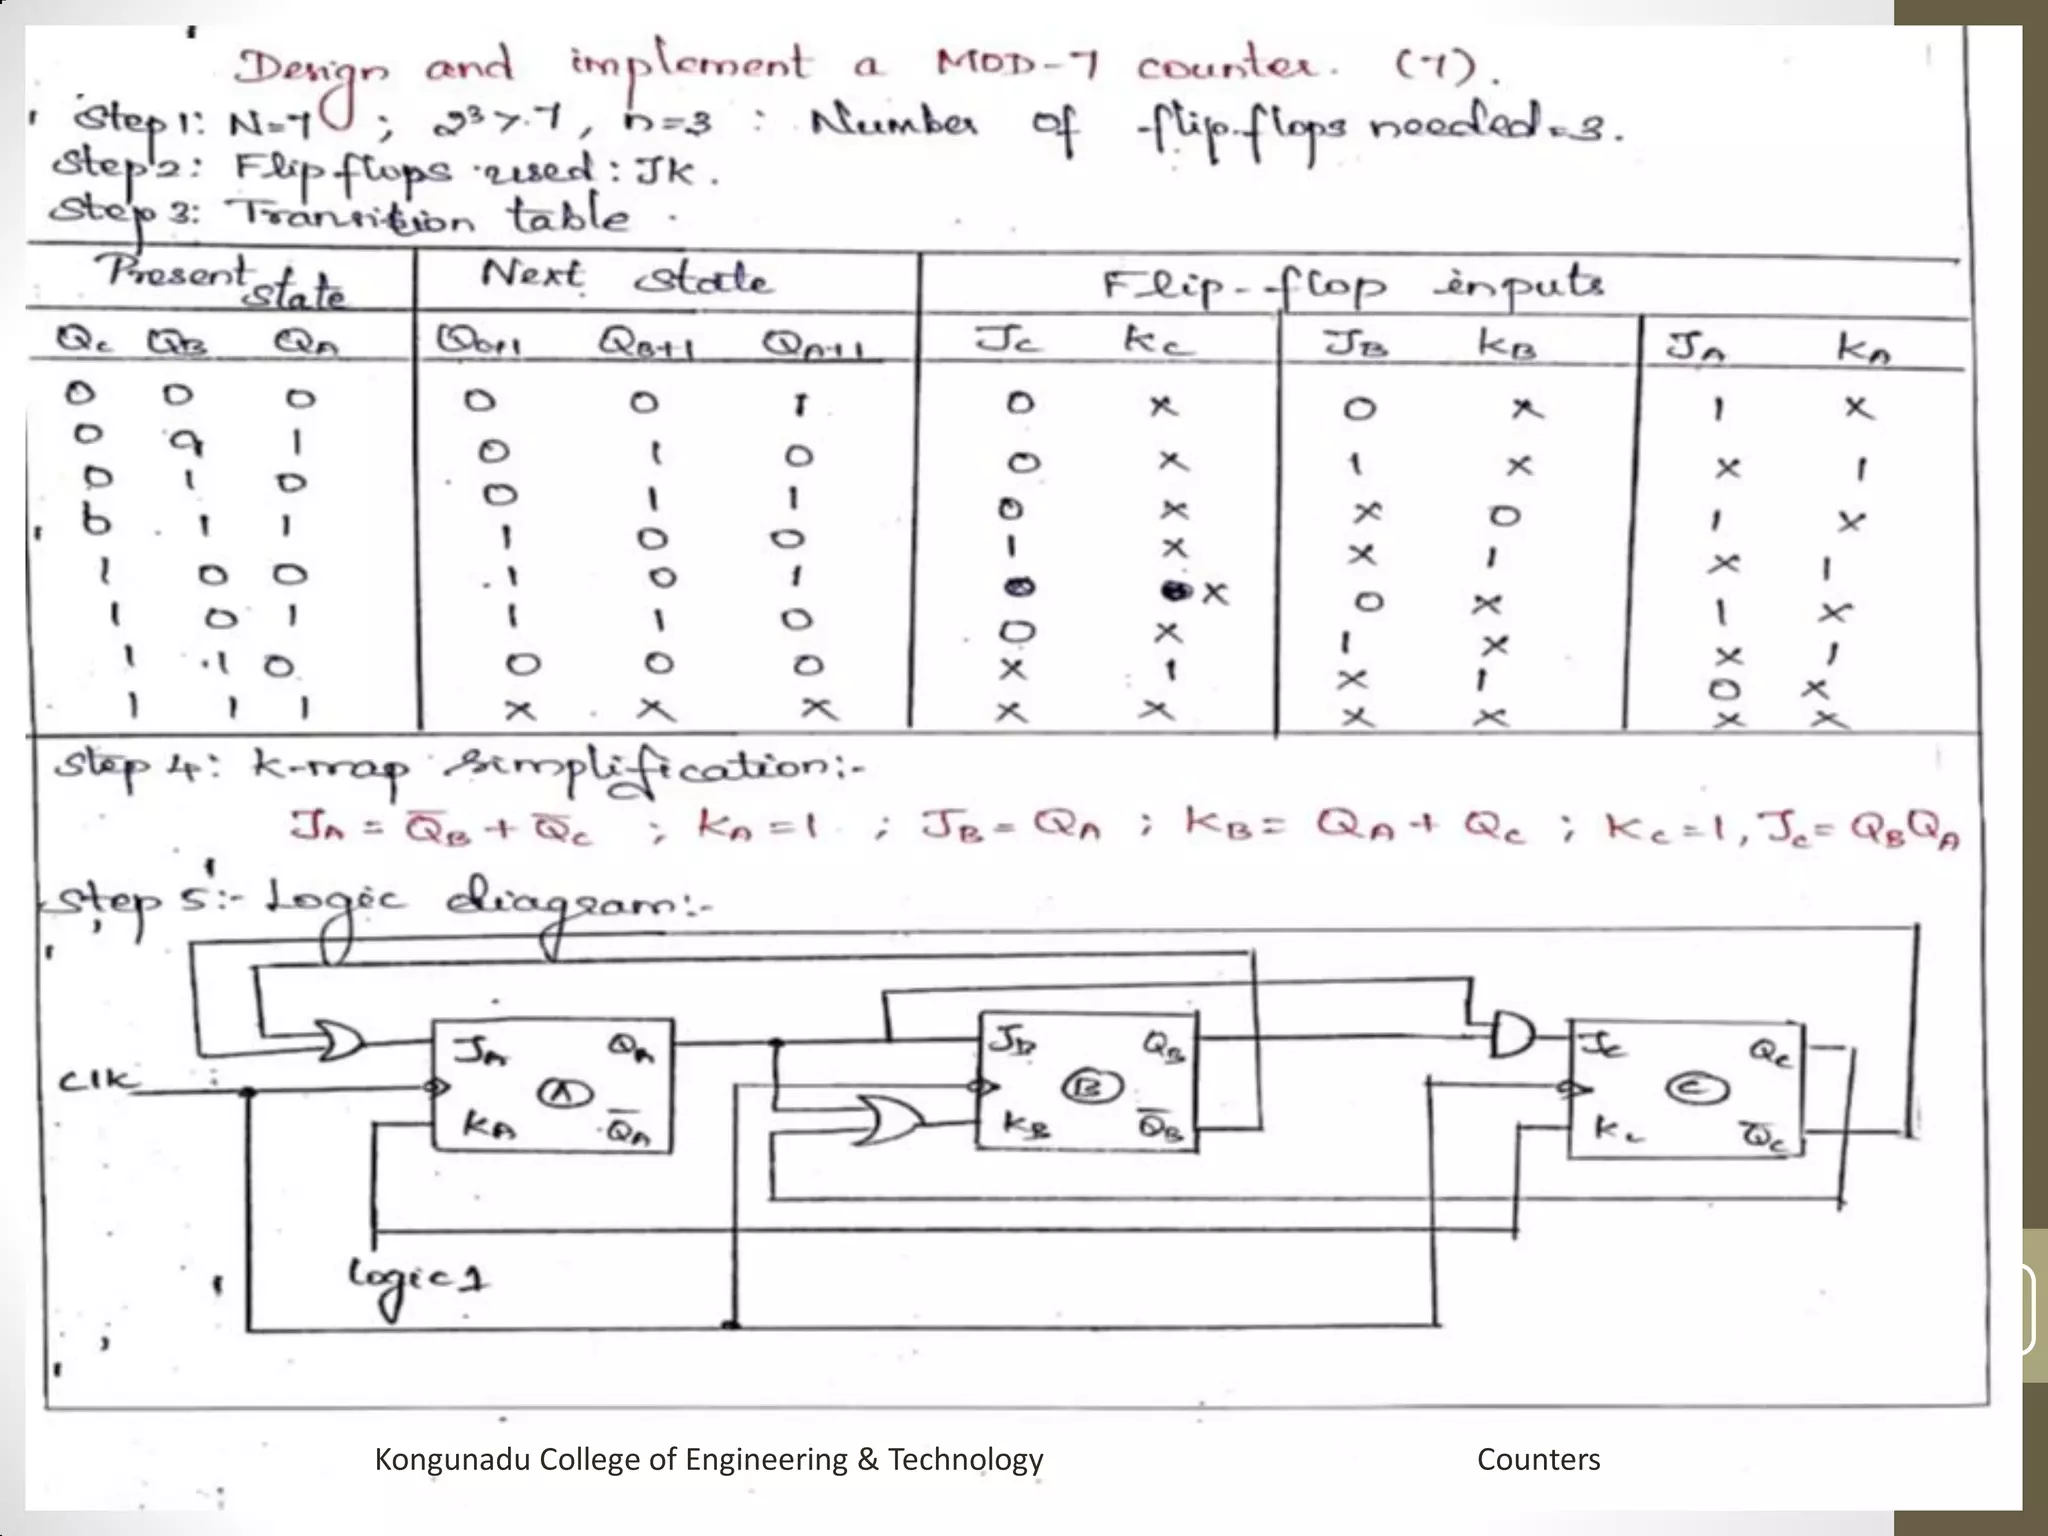 Design and implement a MOD-7 counter. (7).
Step 1: N=7 ; 2³>.7, n=3 : Number of flip-flops needed=3.
Step 2: Flip flops used : JK.
Step 3: Transition table.
Present state Next state Flip-flop inputs
Qc QB QA Qc+1 QB+1 QA+1 Jc Kc JB KB JA KA
0 0 0 0 0 1 0 x 0 x 1 x
0 0 1 0 1 0 0 x 1 x x 1
0 1 0 0 1 1 0 x x 0 1 x
0 1 1 1 0 0 1 x x 1 x 1
1 0 0 1 0 1 0 x 0 x 1 x
1 0 1 1 1 0 0 x 1 x x 1
1 1 0 0 0 0 x 1 x 1 0 x
1 1 1 x x x x x x x x x
Step 4: K-map simplification:-
JA = Q̅B + Q̅c ; KA = 1 ; JB = QA ; KB = QA + Qc ; Kc = 1, Jc = QBQA
Step 5:- Logic diagram:-
JA QA JB QB Jc Qc
Clk A B C
KA Q̅A KB Q̅B Kc Q̅c
Logic 1
Kongunadu College of Engineering & Technology Counters